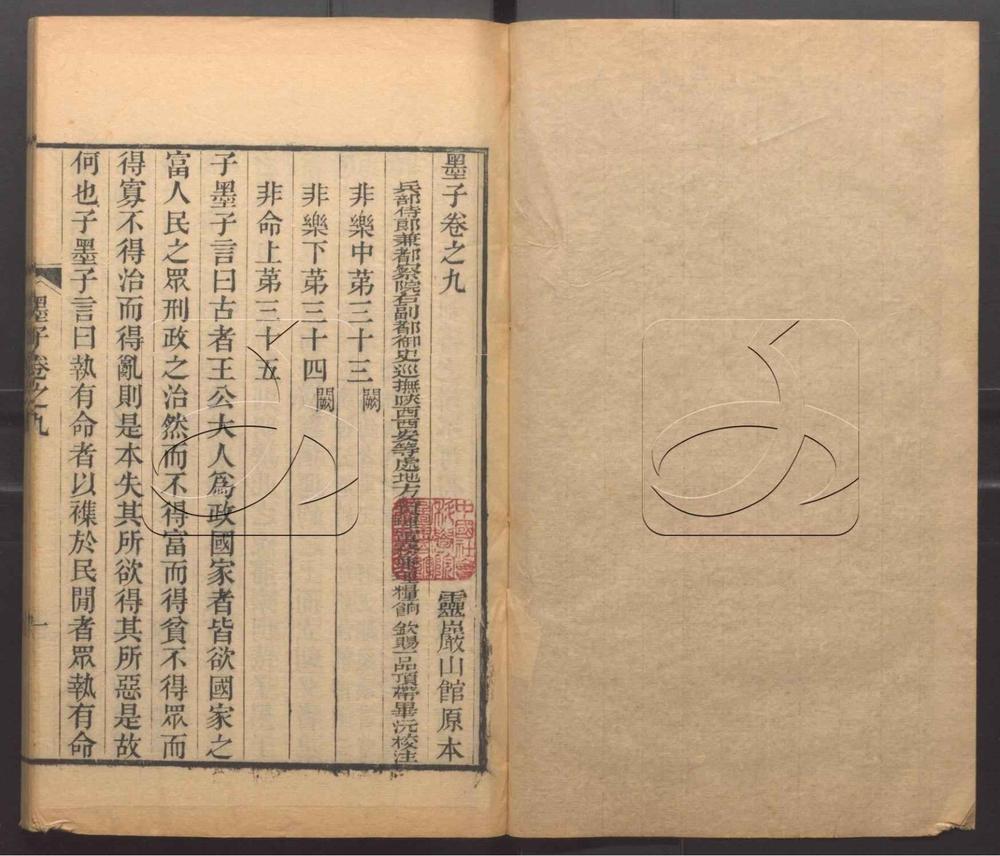 墨子卷之九　靈巖山館原本
兵部侍郎兼都察院右副都御史巡撫陝西西安等處地方贊理軍務兼理糧餉 欽賜一品頂帶畢沅校注
非樂中第三十三闕
非樂下第三十四闕
非命上第三十五
子墨子言曰古者王公大人爲政國家者皆欲國家之
富人民之眾刑政之治然而不得富而得貧不得眾而
得寡不得治而得亂則是本失其所欲得其所惡是故
何也子墨子言曰執有命者以襍於民閒者眾執有命
墨子卷之九
一